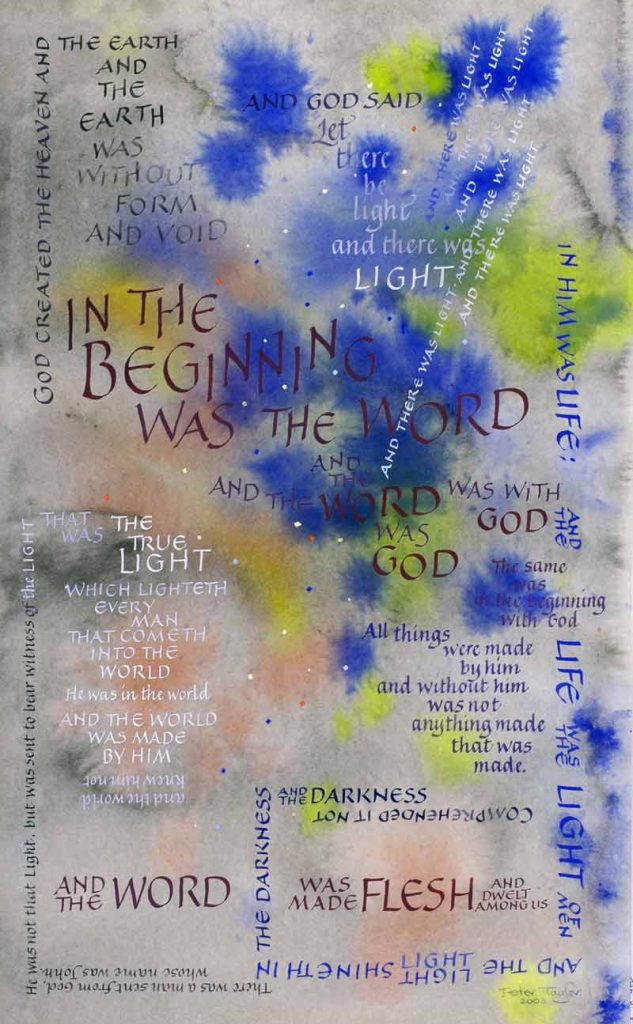 GOD CREATED THE HEAVEN AND
THE EARTH
AND
THE
EARTH
WAS
WITHOUT
FORM
AND VOID
AND GOD SAID
Let
there
be
light
and there was
LIGHT.
AND THERE WAS LIGHT
AND THERE WAS LIGHT
AND THERE WAS LIGHT. AND THERE WAS LIGHT
AND THERE WAS LIGHT
AND THERE WAS LIGHT
IN THE
BEGINNING
WAS THE WORD
AND THE WORD WAS WITH
GOD
AND
THE
WORD
WAS
GOD
The same
was
in the beginning
with God
All things
were made
by him
and without him
was not
anything made
that was
made.
IN HIM WAS LIFE:
AND THE LIFE WAS THE LIGHT OF MEN
AND THE LIGHT SHINETH IN
LIGHT
THE DARKNESS
AND THE DARKNESS
COMPREHENDED IT NOT
There was a man sent from God,
whose name was John.
He was not that Light, but was sent to bear witness of the LIGHT
THAT WAS
THE
TRUE
LIGHT
WHICH LIGHTETH
EVERY
MAN
THAT COMETH
INTO THE
WORLD
He was in the world
AND THE WORLD
WAS MADE
BY HIM
and the world
knew him not
AND THE WORD
WAS MADE FLESH AND DWELT AMONG US
Peter Taylor